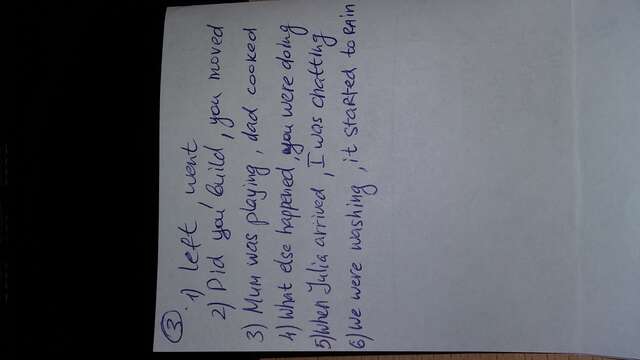 3
1) left, went
2) Did you build, you moved
3) Mum was playing, dad cooked
4) What else happened, you were doing
5) When Julia arrived, I was chatting
6) We were washing, it started to rain